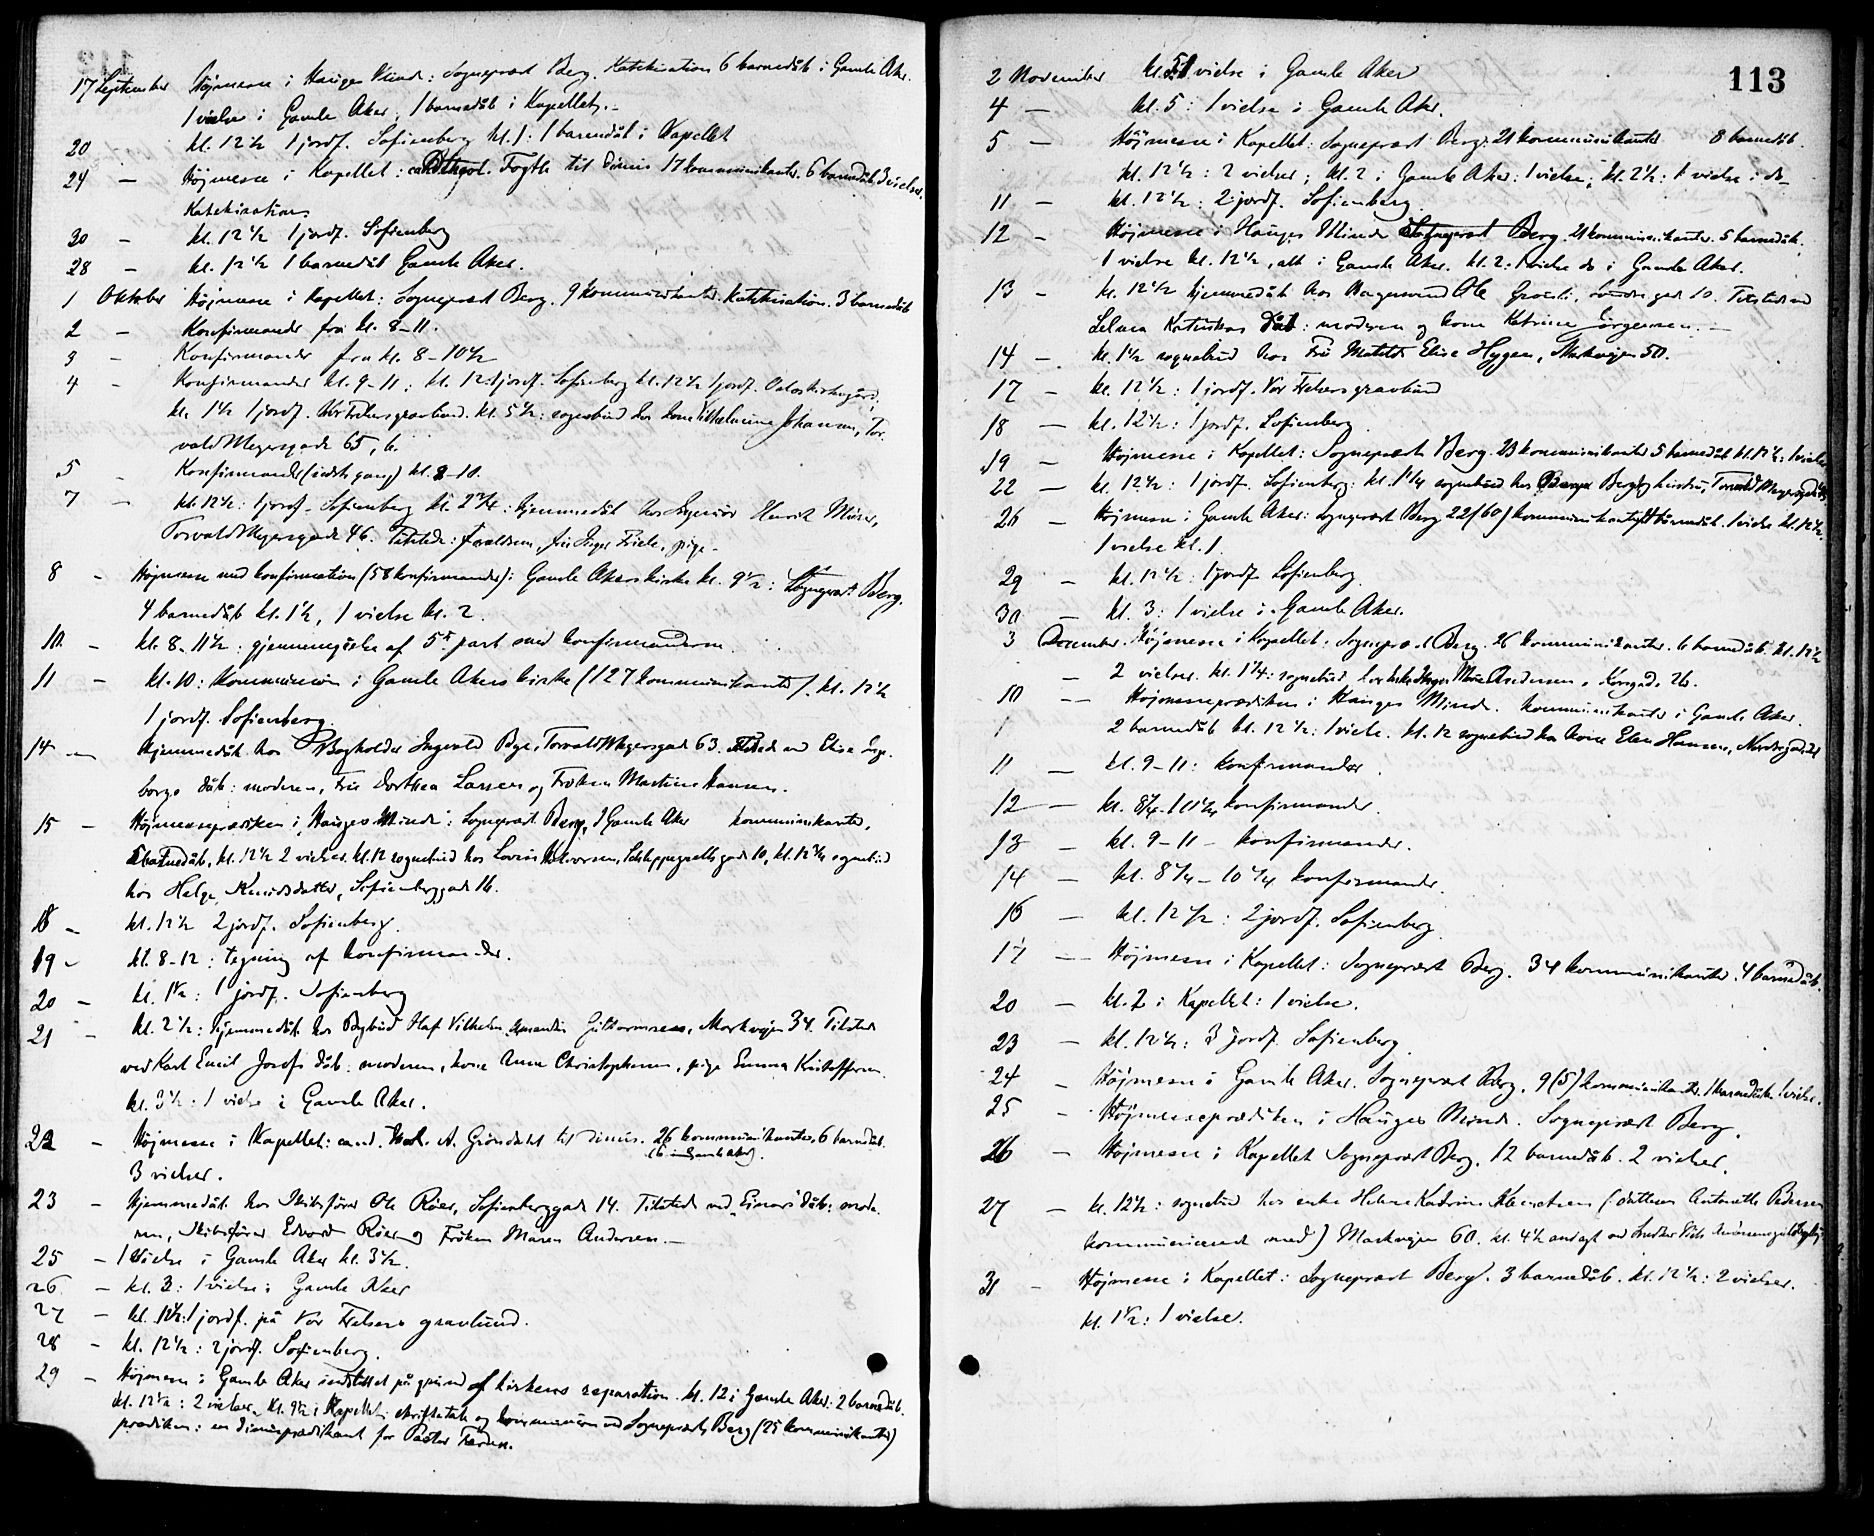 17 September Højmesse i Hauges Minde: Sogneprest Berg. Katekisation 6 barnedåb i Gamle Aker.
1 vielse i Gamle Aker, 1 barnedåb i Kapellet.
20 kl. 12½ 1 jordf. Sofienberg kl. 1: 1 barnedåb i Kapellet
24 — Højmesse i Kapellet: Fogth til dimis 17 kommunikanter. 6 barnedåb, 3 vielser.
Katekisation.
30 — kl. 12½ 1 jordf. Sofienberg
28 — kl. 12½ 1 barnedåb Gamle Aker.
1 Oktober Højmesse i Kapellet: Sogneprest Berg. 9 Kommunikanter. Katekisation. 3 barnedåb
2 — Konfirmander fra kl. 8–11.
3 — Konfirmander fra kl. 8–10½
4 — Konfirmander kl. 9–11; kl. 12: 1 jordf. Sofienberg kl. 12½ 1 jordf. Oslo kirkegård,
kl. 1½ 1 jordf. Vor Frelsers gravlund. kl. 5½: sognebud hos kone Vilhelmine Johansen, Tor-
vald Meyersgade 65, 6.
5 — Konfirmander (sidste gang) kl. 8–10.
7 — kl. 12½: 1 jordf. Sofienberg kl. 2¾: hjemmedåb hos Ingeniør Henrik
Torvald Meyersgade 46. Tilstede: forældrene, fru Inger Friele, pige.
8 — Højmesse med konfirmation (58 konfirmander) i Gamle Akers kirke kl. 9½: Sogneprest Berg.
4 barnedåb kl. 1½, 1 vielse kl. 2.
10. — kl. 8–11½: gjennemgåelse af 5te part med konfirmanderne.
11 — kl. 10: Kommunion i Gamle Akers kirke (127 kommunikanter). kl. 12½
1 jordf. Sofienberg.
14 — Hjemmedåb hos Bogholder Ingvald Bye, Torvald Meyersgade 63. Tilstede ved Elise Inge-
borgs dåb: moderen, Fru Dorthea Larsen og Frøken Martine Hansen.
15 — Højmesseprædiken i Hauges Minde: Sogneprest Berg, I Gamle Aker kommunikanter,
barnedåb, kl. 12½ 2 vielser. kl. 12 sognebud hos Lovise Halvorsen, Schleppegrells gade 10, kl. 12¾ sognebud
hos Helge Knudsdatter, Sofienberggade 16.
18 — kl. 12½ 2 jordf. Sofienberg.
19 — kl. 8–12: tegning af konfirmander.
20 — kl. 1½: 1 jordf. Sofienberg
21 — kl. 2½: hjemmedåb hos Bybud Olaf Vilhelm Guttormsen, Markvejen 34. Tilstede
ved Karl Emil Josefs dåb: moderen, kone Anne Christophersen, pige Emma Kristoffersen.
kl. 3½: 1 vielse i Gamle Aker.
22 — Højmesse i Kapellet: cand. A. Grøndahl til dimis. 26 kommunikanter, 6 barnedåb.
(6 i Gamle Aker).
3 vielser.
23 — Hjemmedåb hos Skibsfører Ole Røer, Sofienberggade 14. Tilstede ved Einars dåb: mode-
ren, Skibsfører Edvard Røer og Frøken Maren Andersen.—
25 — 1 Vielse i Gamle Aker kl. 3½.
26 — kl. 3: 1 vielse i Gamle Aker
27 — kl. 12½: 1 jordf. på Vor Frelsers gravlund.
28 — kl. 12½: 2 jordf. Sofienberg.
29 — Højmesse i Gamle Aker indstillet på grund af kirkens reparation. kl. 12 i Gamle Aker: 2 barnedåb.
kl. 12½: 2 vielser. Kl. 9½ i Kapellet: skriftetale og kommunion ved Sogneprest Berg (25 kommunikanter)
prædiken: en dimisprædikant for Pastor Færden.
113
2 November kl. 5 1 vielse i Gamle Aker
4 — kl. 5: 1 vielse i Gamle Aker.
5 — Højmesse i Kapellet: Sogneprest Berg. 21 kommunikanter 8 barnedåb.
kl. 12½: 2 vielser; kl. 2 i Gamle Aker: 1 vielse; kl. 2½: 1 vielse i do—
11 — kl. 12½: 2 jordf. Sofienberg
12 — Højmesse i Hauges Minde Sogneprest Berg. 21 kommunikanter. 5 barnedåb.
1 vielse kl. 12½, alt i Gamle Aker. kl. 2: 1 vielse do i Gamle Aker.
13 — kl. 12½ hjemmedåb hos Ole gade 10. Tilstede ved
Selma Katinkas dåb: moderen og kone Katrine Jørgensen.—
14 — kl. 1½ sognebud hos Fru Matilde Elise Hygen, Markvejen 50.
17 — kl. 12½: 1 jordf. Vor Frelsers gravlund
18 — kl. 12½: 1 jordf. Sofienberg
19 — Højmesse i Kapellet: Sogneprest Berg. 23 kommunikanter 5 barnedåb kl. 12½: 1 vielse
22 — kl. 12½: 1 jordf. Sofienberg: kl. 1¼ sognebud hos Berg og hustru, Torvald Meyersgade
26 — Højmesse i Gamle Aker: Sogneprest Berg 22 (60) kommunikanter barnedåb. 1 vielse kl. 12½,
1 vielse kl. 1.
29 — kl. 12½: 1 jordf. Sofienberg.
30 — kl. 3: 1 vielse i Gamle Aker.
3 December. Højmesse i Kapellet: Sogneprest Berg. 26 kommunikanter. 6 barnedåb. kl. 12½
— 2 vielser. kl. 1¼: sognebud hos enke Inger Marie Andersen, Korsgad. 26.
10 — Højmesseprædiken i Hauges Minde. Kommunikanter i Gamle Aker.
2 barnedåb kl. 12½: 1 vielse. kl. 12 sognebud hos kone Elen Hansen, Nordregad. 21
11 — kl. 9–11: konfirmander.
12 — kl. 8¼–10¼ konfirmander.
13 — kl. 9–11 – konfirmander.
14 — kl. 8¼–10¼ konfirmander.
16 — kl. 12½: 2 jordf. Sofienberg.
17 — Højmesse i Kapellet: Sogneprest Berg. 34 kommunikanter. 4 barnedåb.
20 — kl. 2 i Kapellet: 1 vielse.
23 — kl. 12½: 3 jordf. Sofienberg.
24 — Højmesse i Gamle Aker. Sogneprest Berg. 9 (5) kommunikanter. 1 barnedåb. 1 vielse.
25 — Højmesseprædiken i Hauges Minde. Sogneprest Berg.
26 — Højmesse i Kapellet Sogneprest Berg. 12 barnedåb. 2 vielser.
27 — kl. 12½: sognebud hos enke Helene Katrine (datteren Antonette Pedersen
kommunicerede med) Markvejen 60. kl. 4½ andagt ved
31 — Højmesse i Kapellet: Sogneprest Berg. 3 barnedåb. kl. 12½: 2 vielser.
kl. 1½: 1 vielse.